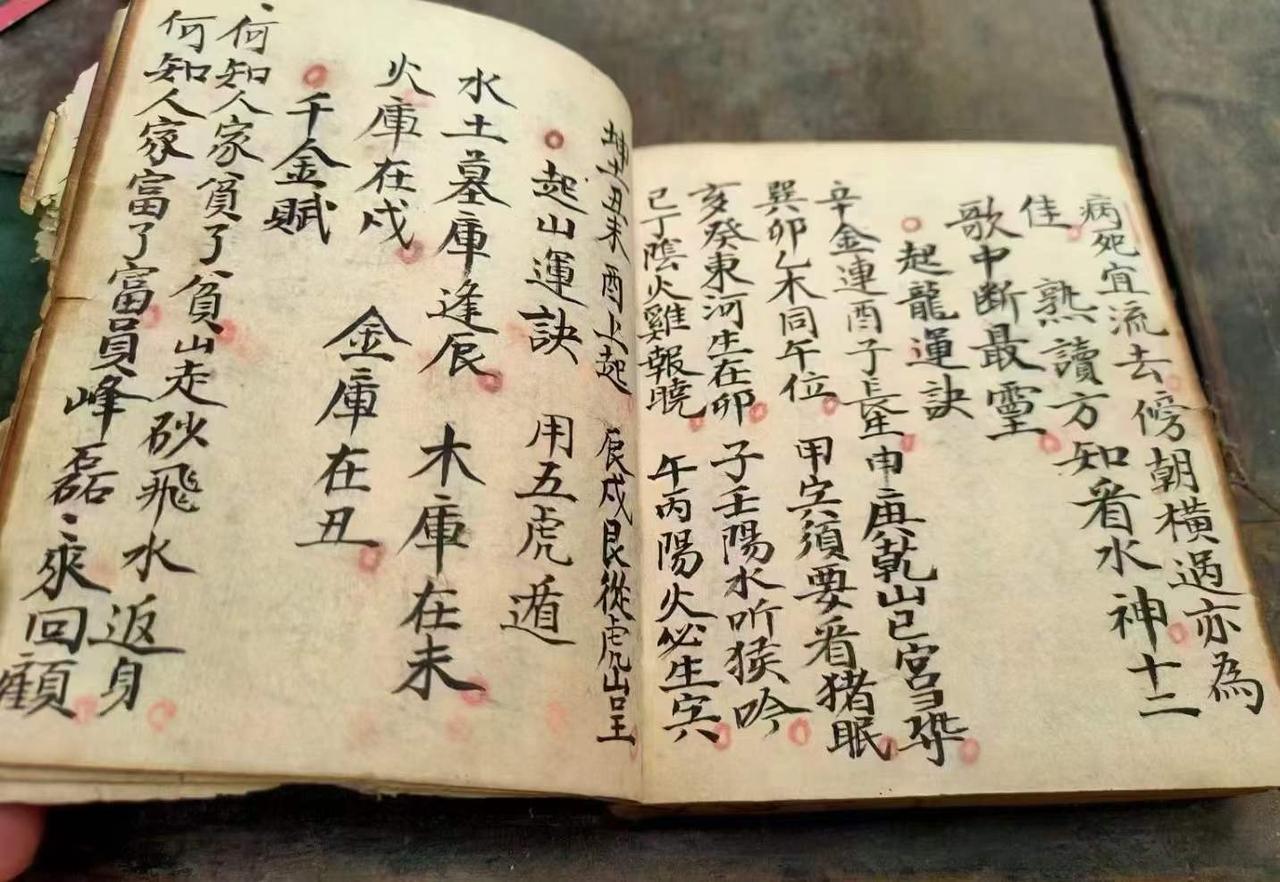 病死宜流去傍朝橫過亦為
佳 熟讀方知看水神十二
歌中斷最靈
起龍運訣
辛金連酉子長生申庚乾山巳宮
巽卯乙木同午位 甲寅須要看猪眠
亥癸東河生在卯 子壬陽水听猴吟
己丁陰火雞報曉 午丙陽火必生寅
坤土丑未酉上起 辰戌艮從虎山
起山運訣 用五虎遁
水土墓庫逢辰 木庫在未
火庫在戌 金庫在丑
千金賦
何知人家貧了貧山走砂飛水返身
何知人家富了富員峰磊〻來回顧